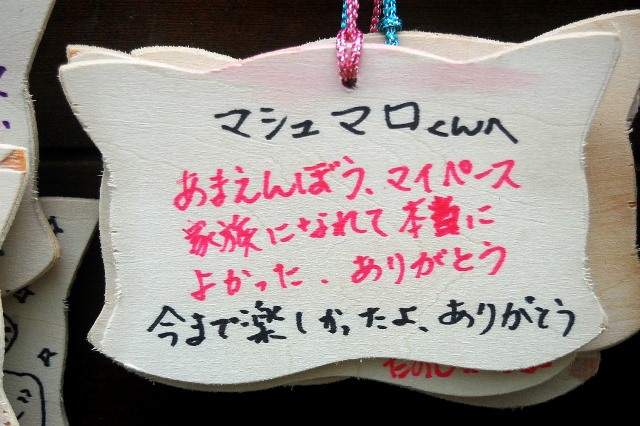 マシュマロくんへ
あまえんぼう、マイペース
家族になれて本当に
よかった。ありがとう
今まで楽しかったよ、ありがとう